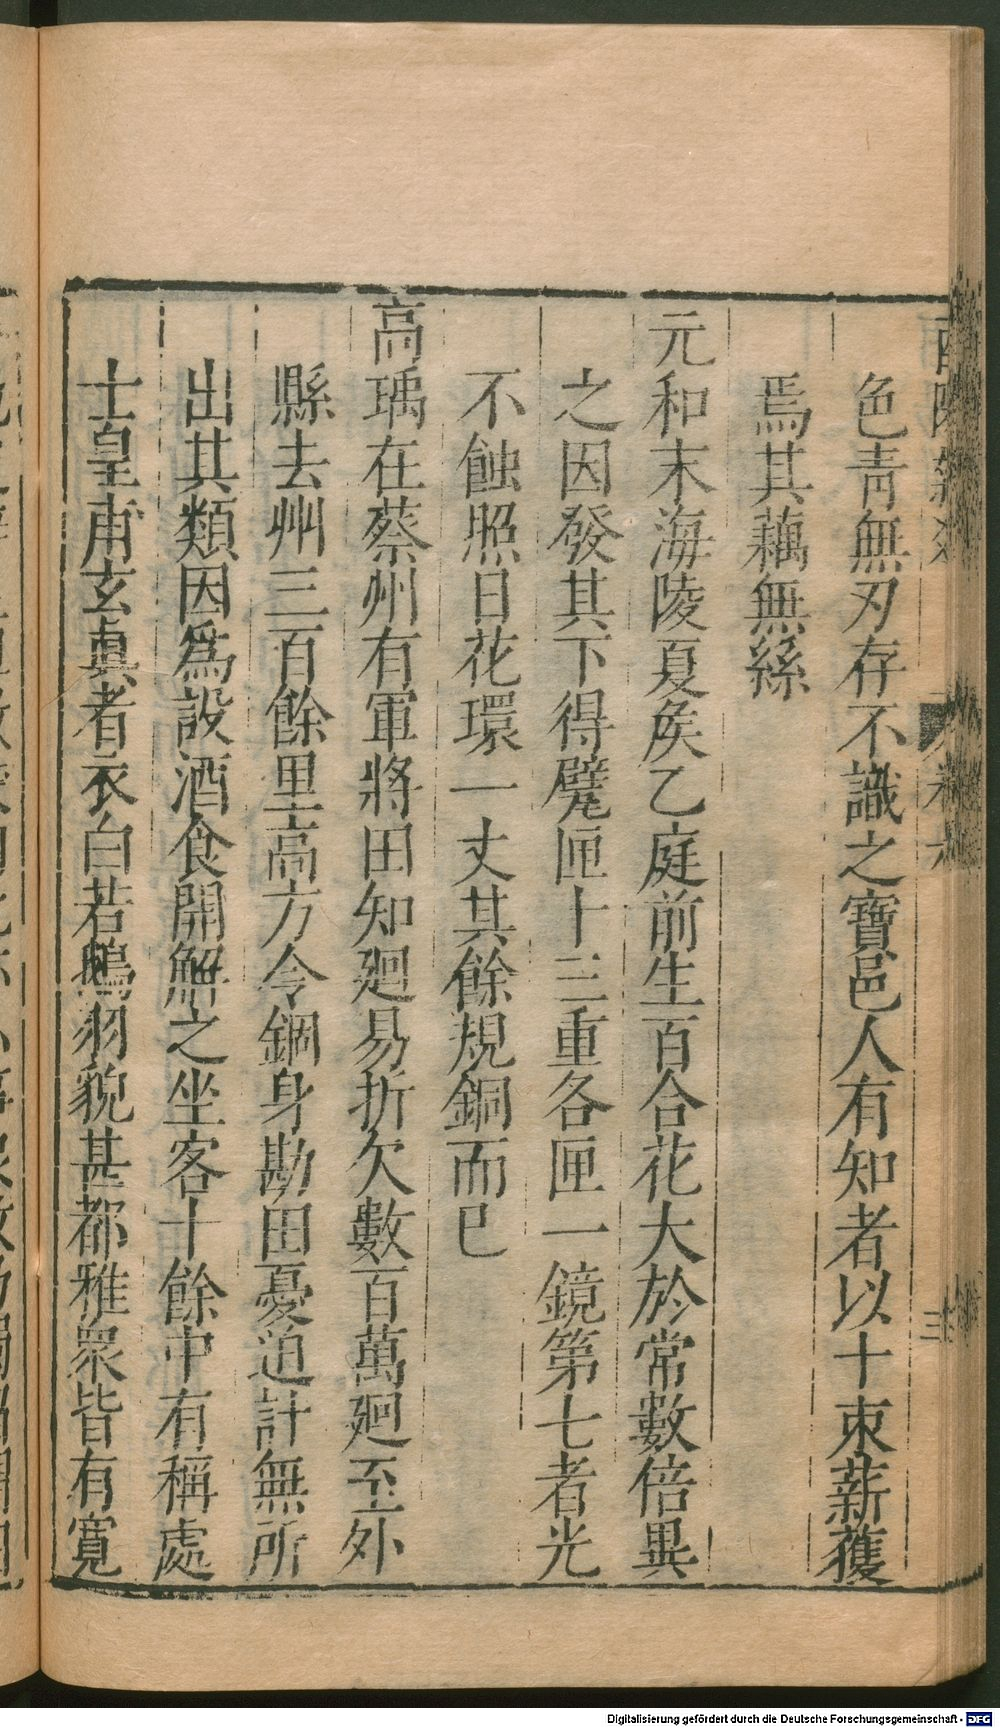 色青無刃存不識之寶邑人有知者以十束薪獲
焉其藕無絲
元和末海陵夏矦乙庭前生百合花大於常數倍異
之因發其下得甓匣十三重各匣一鏡第七者光
不蝕照日花環一丈其餘規銅而已
高瑀在蔡州有軍將田知廻易折欠數百萬廻至外
縣去州三百餘里高方令錮身勘田憂迫計無所
出其類因爲設酒食開解之坐客十餘中有稱處
士皇甫玄眞者衣白若鵝羽貌甚都雅衆皆有寛
Digitalisierung gefördert durch die Deutsche Forschungsgemeinschaft - DFG